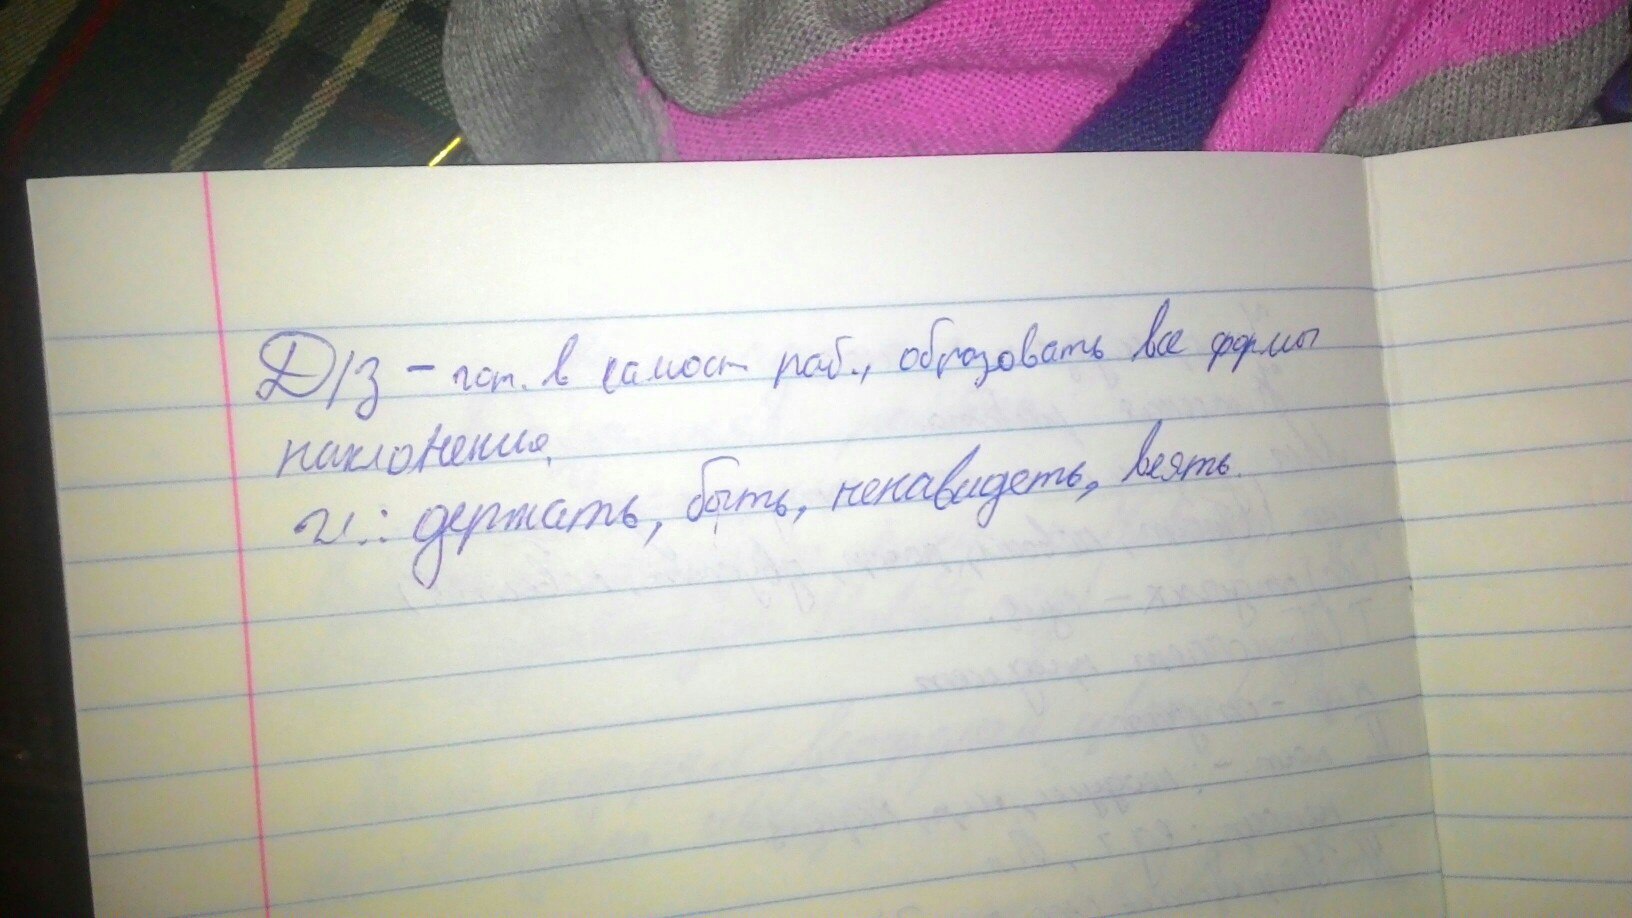 Д/з - гот. в самост раб., образовать все формы
наклонения.
гл.: держать, быть, ненавидеть, веять.